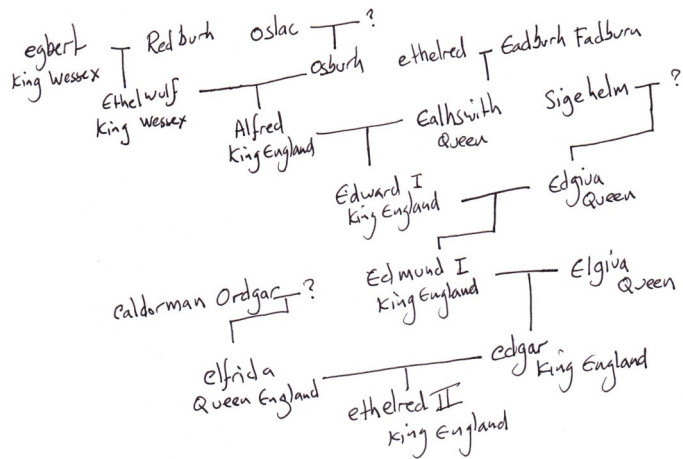 egbert
King Wessex
Redburh
Oslac
?
Osburh
ethelred
Eadburh Fadburn
Ethelwulf
King Wessex
Alfred
King England
Ealhswith
Queen
Sigehelm
?
Edward I
King England
Edgiva
Queen
Edmund I
King England
Elgiva
Queen
Caldorman Ordgar
?
elfrida
Queen England
edgar
King England
ethelred II
King England